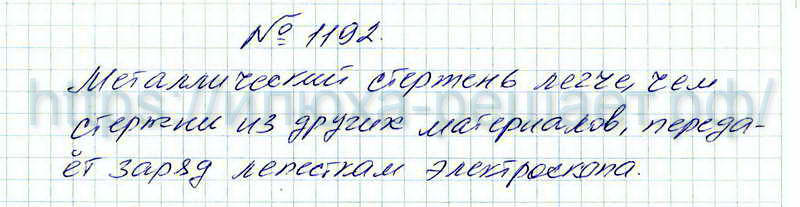 № 1192.
Металлический стержень легче, чем
https://илюха-решает.рф/
стержни из других материалов, переда-
ёт заряд лепесткам электроскопа.